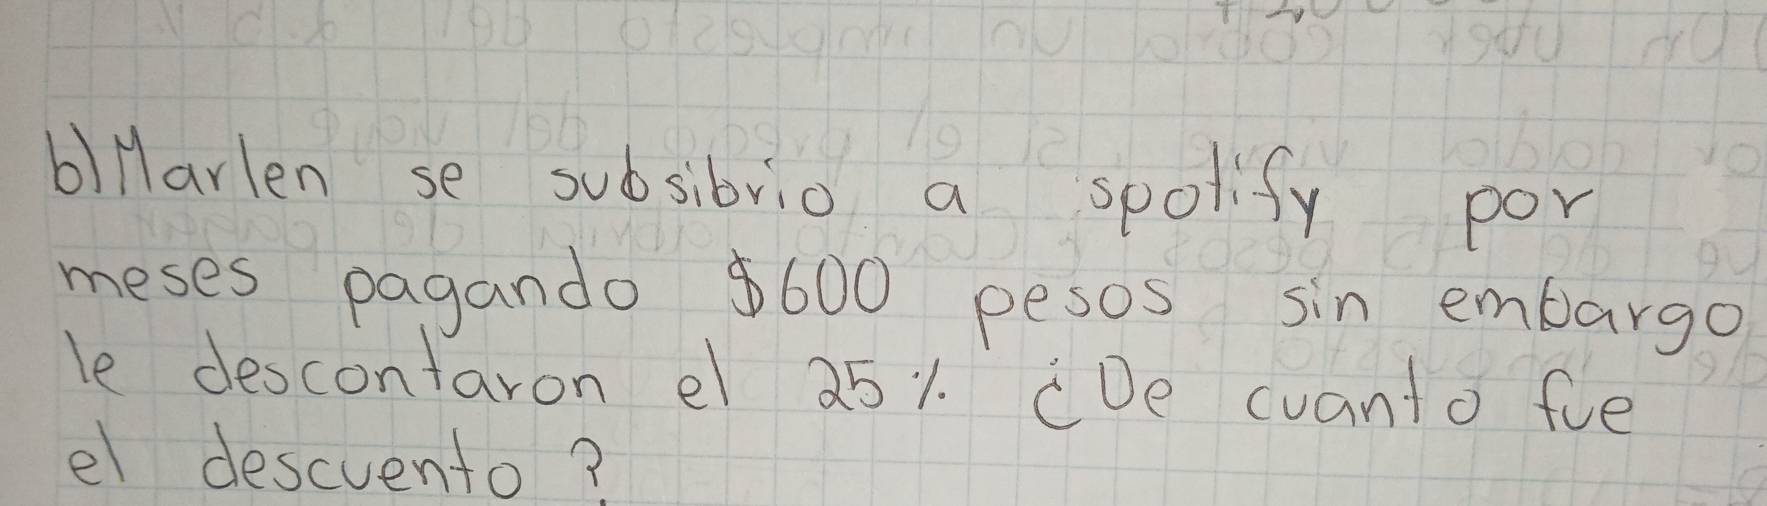 b) Marlen se subsibrio a spotify por
meses pagando $600 pesos sin embargo
le descontaron el 25%. ¿De cuanto fue
el descuento?